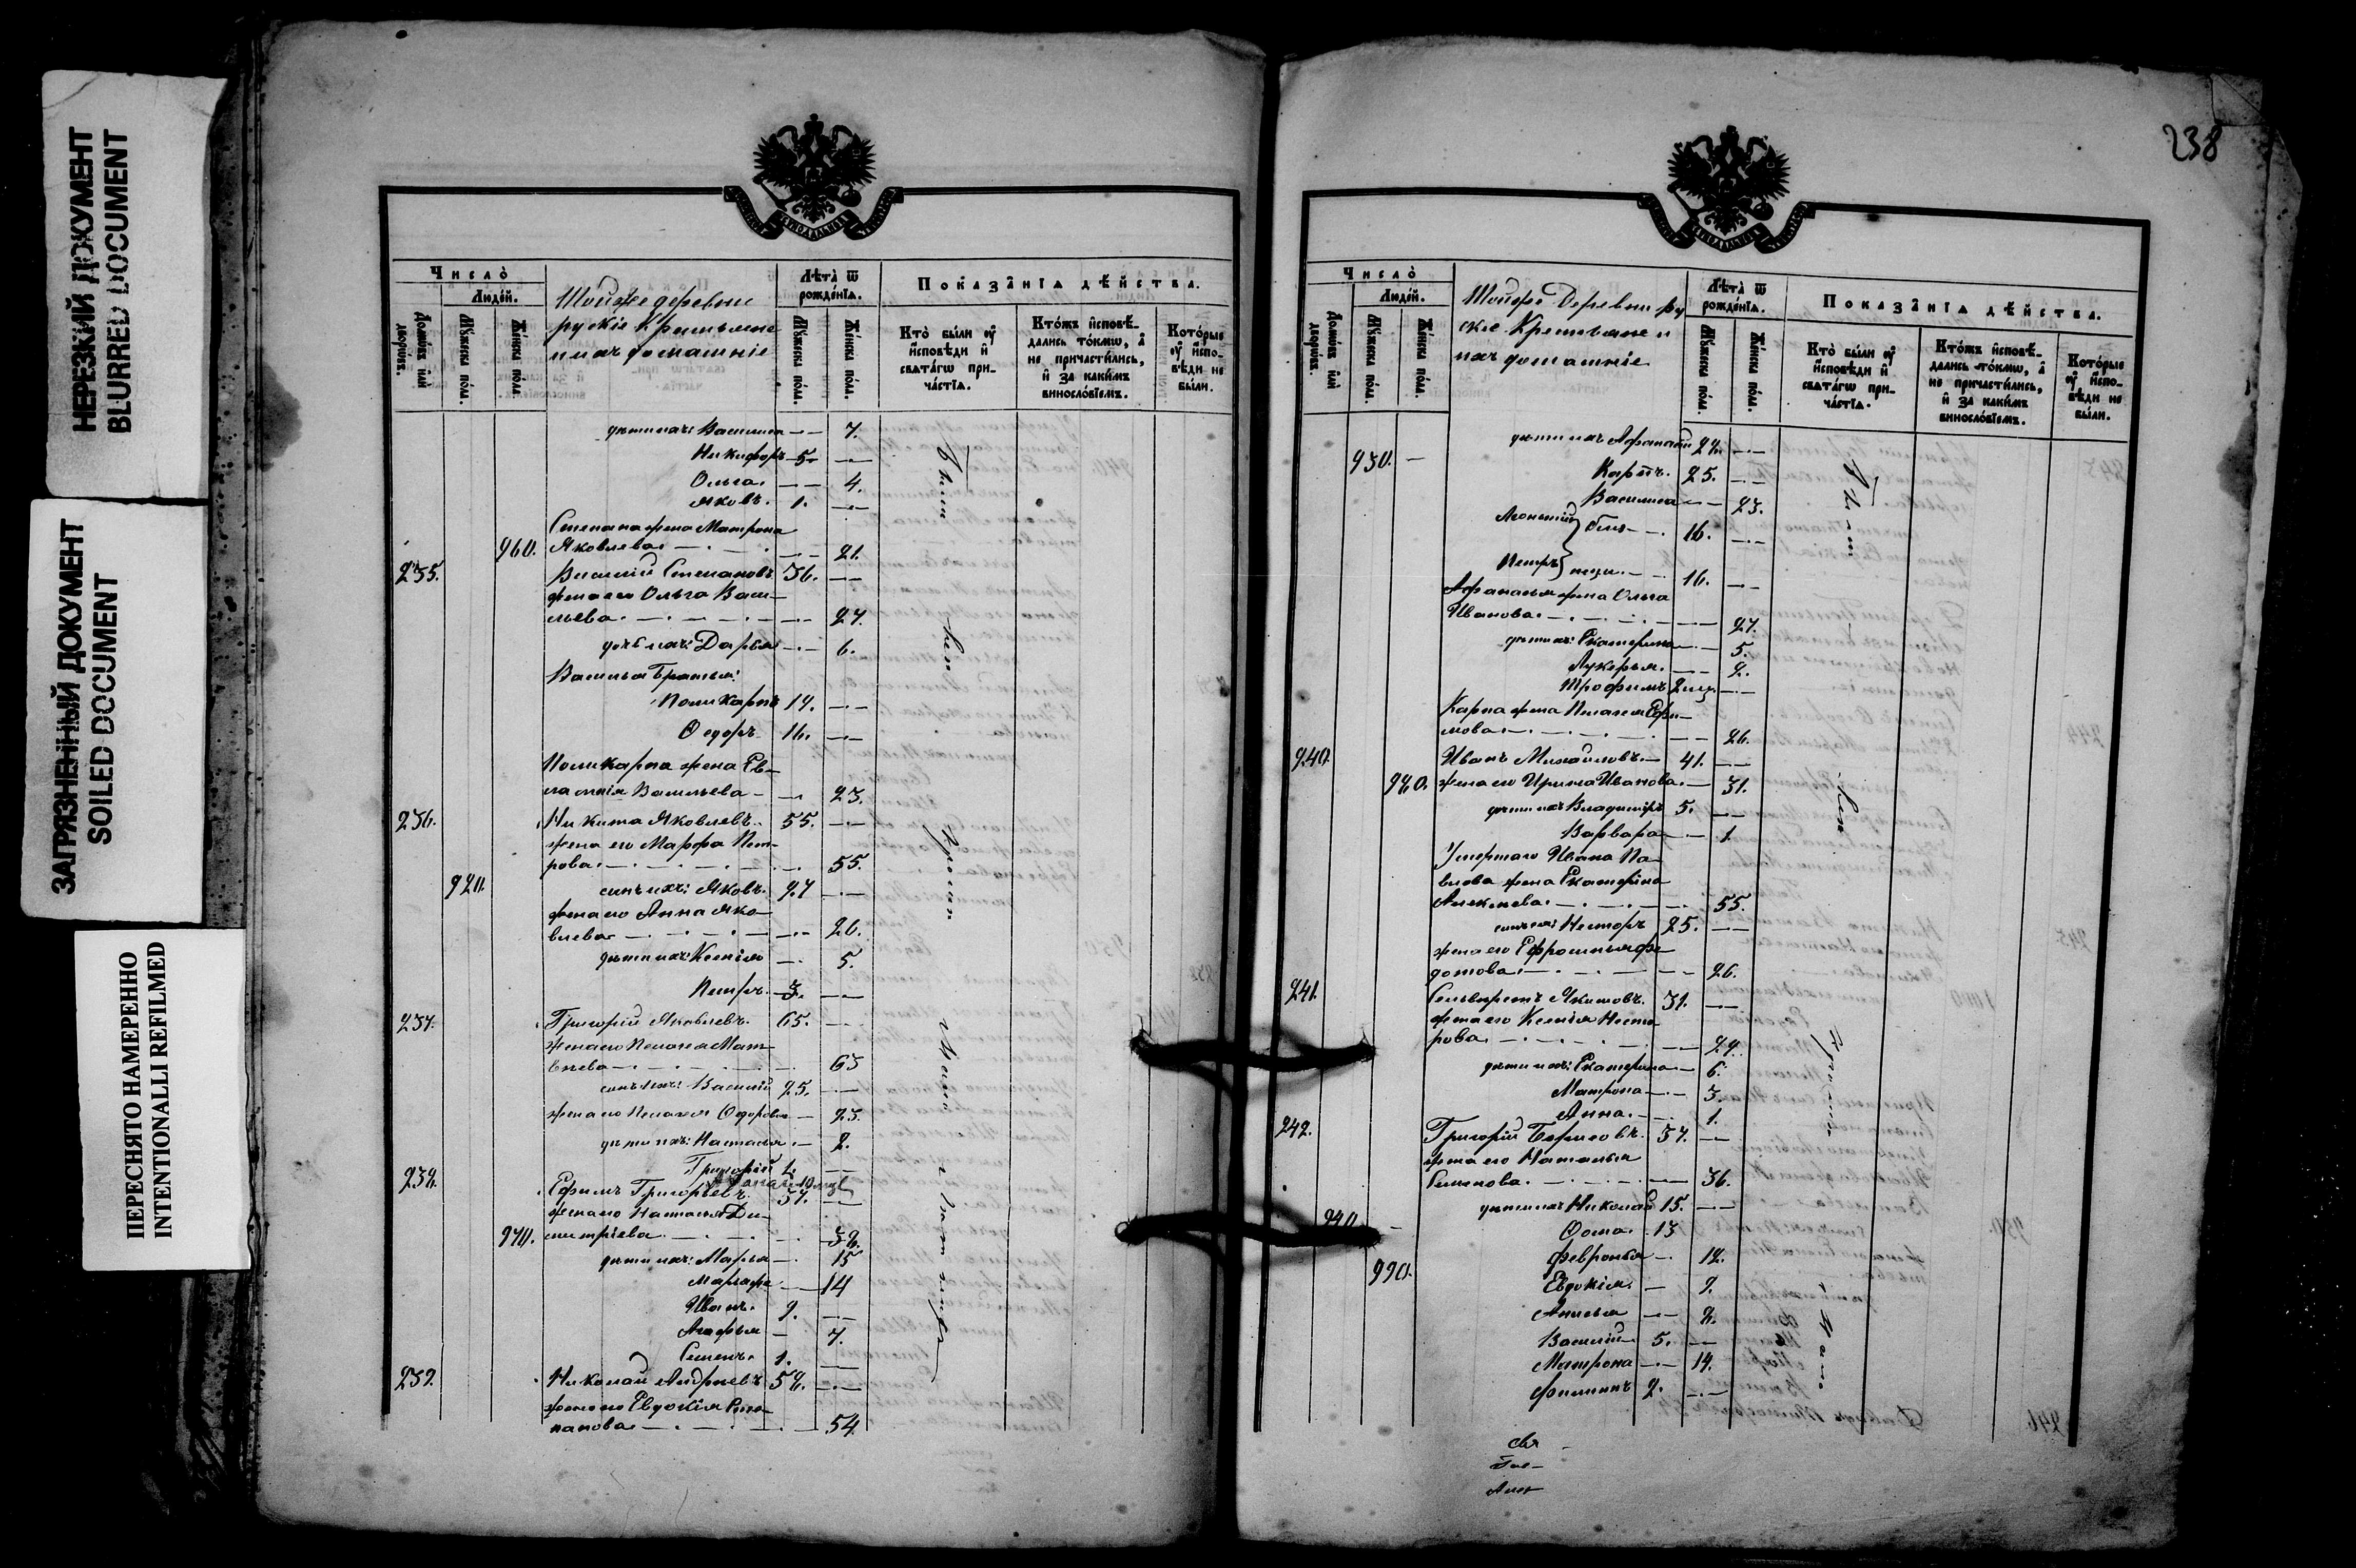 НЕРЕЗКИЙ ДОКУМЕНТ
BLURRED DOCUMENT
ЗАГРЯЗНЕННЫЙ ДОКУМЕНТ
SOILED DOCUMENT
ПЕРЕСНЯТО НАМЕРЕННО
INTENTIONALLI REFILMED
Число̀
Людей.
Домовъ или дворовъ.
Мужеска полу.
Женска полу.
Тойже деревни
руские Крестьяне
и ихъ домашніе
Лѣта ѿ рожденїѧ.
Мужеска полу.
Женска полу.
Показанїѧ дѣйства.
Кто были ѹ исповѣди и свѧтагѡ причастїѧ.
Ктожъ исповѣдались токмѡ, а не причастились, и за какимъ винословїемъ.
Которые ѹ исповѣди не были.
дѣти ихъ: Василиса — 7.
Никифоръ 5. —
Ольга. — 4.
Яковъ. 1. —
Степана жена Матрона
960. Яковлева — 21.
235. Василий Степановъ 36. —
жена его Ольга Васи-
льева — 27.
дочь ихъ: Дарья — 6.
Василья братья:
Поликарпъ 19. —
Ѳедоръ 16. —
Поликарпа жена Ев-
лампія Васильева — 23.
236. Никита Яковлевъ. 55. —
жена его Марфа Пет-
рова — 55.
920. сынъ ихъ: Яковъ. 27 —
жена его Анна Яко-
влева — 26.
дѣти ихъ: Ксенія — 5.
Петръ. 3. —
237. Григорій Яковлевъ. 65. —
жена его Пелагея Мат-
вѣева — 63
сынъ ихъ: Василій 25. —
жена его Пелагея Ѳедорова — 23.
дѣти ихъ: Наталья — 2.
Григорій 1.
238. Ефимъ Григорьевъ 37. —
жена его Наталья Ди-
970. митріева — 38.
дѣти ихъ: Марья — 15
Марфа — 14
Иванъ. 9. —
Агафья — 7.
Семенъ. 1. —
239. Николай Андреевъ 58. —
жена его Евдокія Сте-
панова — 54.
238
Число̀
Людей.
Домовъ или дворовъ.
Мужеска полу.
Женска полу.
Тойже Деревни ру
ские Крестьяне и
ихъ домашніе
Лѣта ѿ рожденїѧ.
Мужеска полу.
Женска полу.
Показанїѧ дѣйства.
Кто были ѹ исповѣди и свѧтагѡ причастїѧ.
Ктожъ исповѣдались токмѡ, а не причастились, и за какимъ винословїемъ.
Которые ѹ исповѣди не были.
930. — дѣти ихъ Афанасій 28. —
Карпъ. 25. —
Василиса — 23.
Леонтій близ- 16. —
Петръ нецы. 16. —
Афанасья жена Ольга
Иванова — 27.
дѣти ихъ: Екатерина — 5.
Лукерья. — 2.
Трофимъ 2 мц. —
Карпа жена Пелагея Ефи-
мова — 26.
240. Иванъ Михайловъ. 41. —
980. жена его Ирина Иванова. — 31.
дѣти ихъ Владиміръ 5. —
Варвара — 1.
Умершаго Ивана Па-
влова жена Екатерина
Алексѣева — 55.
сынъ ея: Несторъ 25. —
жена его Ефросинья Фе-
дотова — 26.
241. Сельвестръ Якимовъ. 31. —
жена его Ксенія Несте-
рова — 29.
дѣти ихъ: Екатерина — 6.
Матрона — 3.
Анна. — 1.
242. Григорій Борисовъ. 37. —
жена его Наталья
Семенова. — 36.
дѣти ихъ Николай 15. —
940. — Ѳома. 13
Февронья — 12.
990. Евдокія. — 9.
Анисья — 8.
Василій 5. —
Матрона — 14.
Филиппъ 2. —